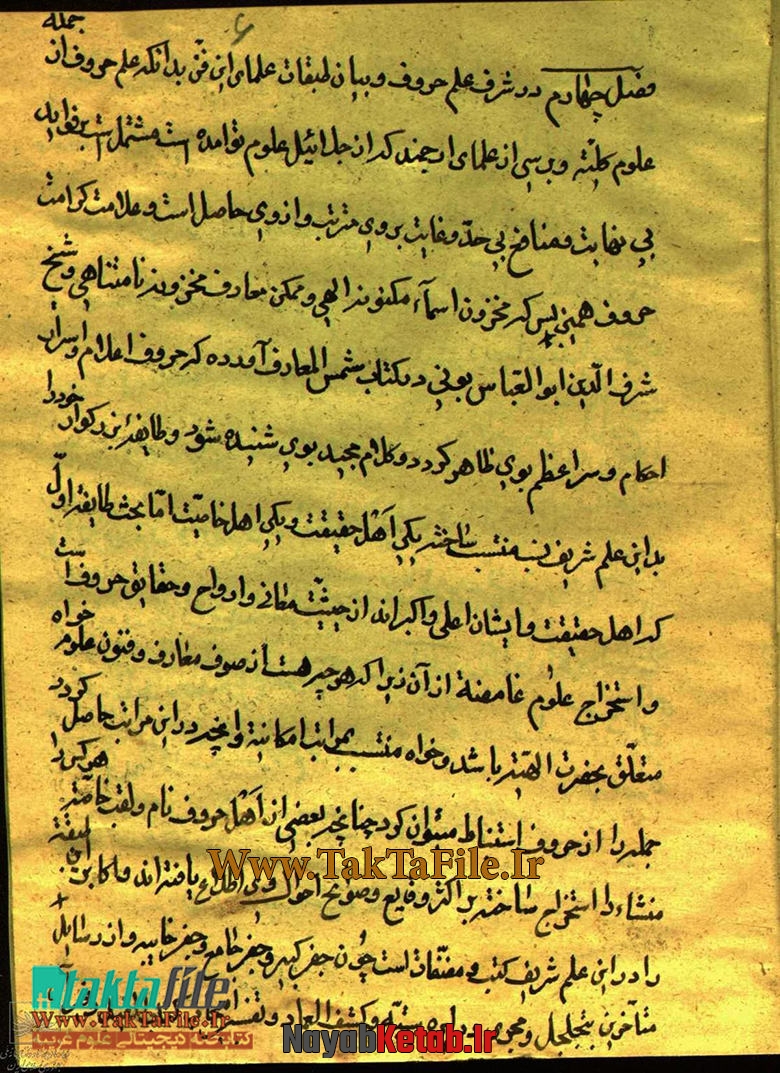 جمله
۶
فصل چهارم در شرف علم حروف و بیان طبقات علمای این فن بدانکه علم حروف از
علوم کلیّه و برسی از علمای ارجمند که از جلائیل علوم توامده است مشتمل است بر فواید
بی نهایت و منافع بی حدّ و غایت بروی مترتب و از وی حاصل است و علامت کرامت
حروف همین بس که مخزون اسمآء مکنونه الهی و ممکن معارف مخزونه نامتناهی و شیخ
شرف الدین ابو العباس بونی در کتاب شمس المعارف آورده که حروف اعلام و اسرار
احکام و سر اعظم بوی ظاهر کردد و کلام مجید بوی شنیده شود و طایفه بزرکوار خود را
بداین علم شریف منتسب ساخته یکی اهل حقیقت و یکی اهل خاصیّت امّا بحث طایفه اوّل
که اهل حقیقت و ایشان اعلی و اکبراند از حیثیّت معانی و ارواح و حقایق حروف است
و استخراج علوم غامضه از آن زیرا که هر چه هست از صنوف معارف و فنون علوم خواه
متعلّق بحضرت الهیّه باشد و خواه منتسب بمراتب امکانیّة و انچه در این مراتب حاصل کردد
جمله را از حروف استنباط میتوان کرد چنانچه بعضی از اهل حروف نام و لقب خاصّه هر کس را
منشاء استخراج ساخته بر اکثر وقایع و سوانح احوال وی اطلاع یافته اند و اکابر این طبقة
را در این علم شریف کتب و مصنّفات است چون جفر کبیر و جفر جامع و جفر خابیه و از رسایل
متأخرین سجلجل و محبوب و کشف المعاد و تفسیر
www.TakTaFile.Ir
taktafile
www.TakTaFile.Ir
کتابخانه دیجیتالی علوم غریبه
NayabKetab.Ir